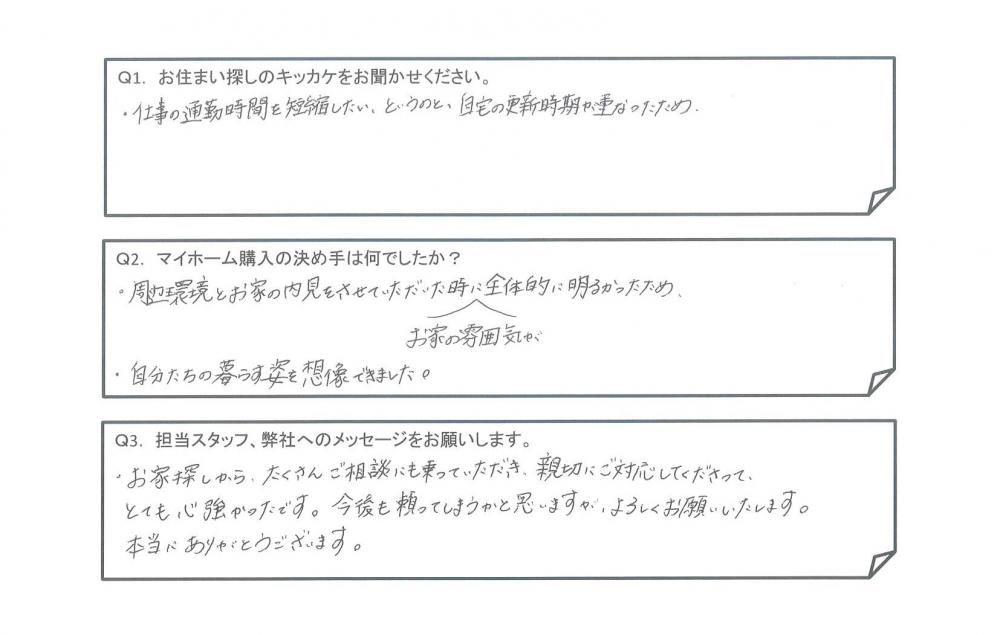 Q1. お住まい探しのキッカケをお聞かせください。
・仕事の通勤時間を短縮したい、というのと、自宅の更新時期が重なったため.
Q2. マイホーム購入の決め手は何でしたか？
・周辺環境とお家の内見をさせていただいた時に全体的に明るかったため、
お家の雰囲気が
・自分たちの暮らす姿を想像できました。
Q3. 担当スタッフ、弊社へのメッセージをお願いします。
・お家探しから、たくさんご相談にも乗っていただき、親切にご対応してくださって、
とても心強かったです。今後も頼ってしまうかと思いますが、よろしくお願いいたします。
本当にありがとうございます。